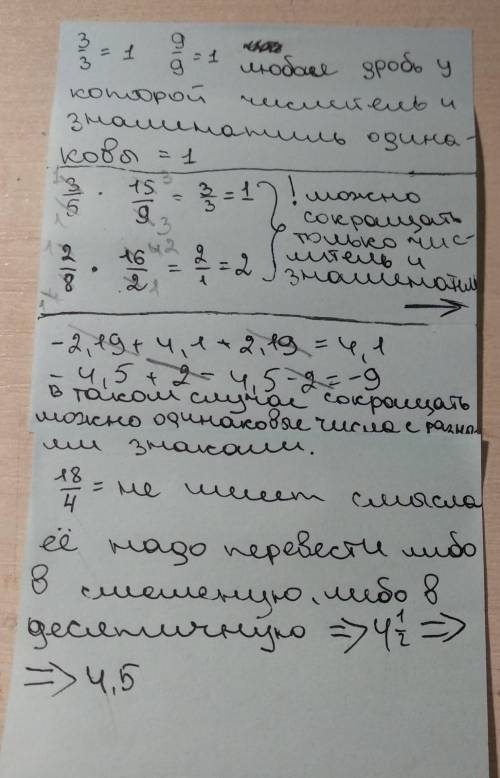 3/3 = 1 9/9 = 1 любая дробь у
которой числитель и
знаменатиль одина-
ковы = 1
3/5 · 15/9 = 3/3 = 1 ! можно
сокращать
только чис-
литель и
2/8 · 16/2 = 2/1 = 2 знаменатил
-2,19 + 4,1 + 2,19 = 4,1
- 4,5 + 2 - 4,5 - 2 = -9
в таком случае сокращать
можно одинаковые числа с разны-
ми знаками.
18/4 = не имеет смысла
её надо перевести либо
в смешеную, либо в
десятичную => 4 1/2 =>
=> 4,5